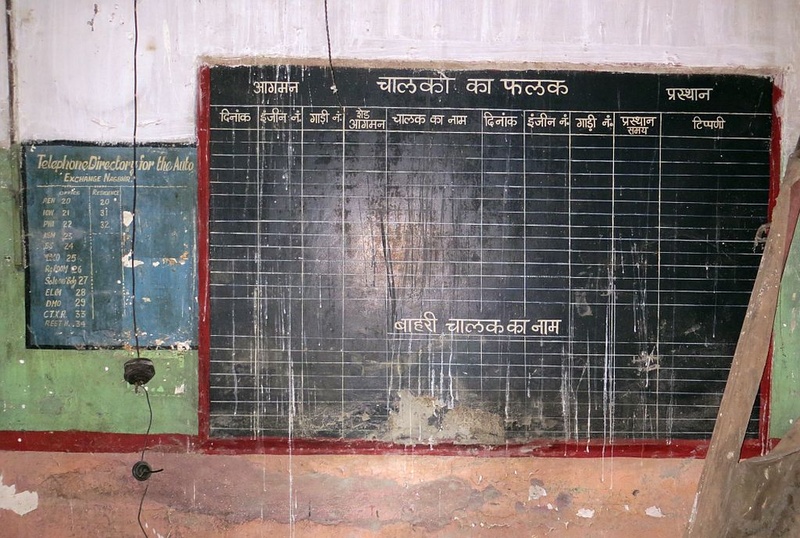 Telephone Directory for the Auto
"Exchange Nagpur"
OFFICE RESIDENCE
20 20
21 31
22 32
23
24
25
26
27
28
DMO 29
C.T.X.R. 33
REST R. 34
चालको का फलक
आगमन प्रस्थान
दिनांक इंजीन नं. गाड़ी नं. शेड आगमन चालक का नाम दिनांक इंजीन नं. गाड़ी नं. प्रस्थान समय टिप्पणी
बाहरी चालक का नाम